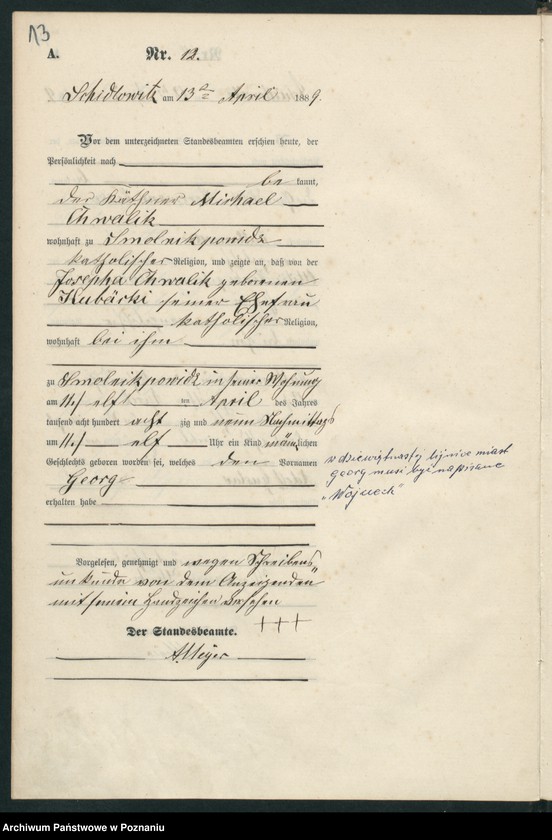 13
A. Nr. 12.
Schidlowitz am 13ten April 1889.
Vor dem unterzeichneten Standesbeamten erschien heute, der
Persönlichkeit nach
be kannt,
der Käthner Michael
Chwalik
wohnhaft zu Smolnikpowidz
katholischer Religion, und zeigte an, daß von der
Josepha Chwalik geborenen
Kubarki seiner Ehefrau
katholischer Religion,
wohnhaft bei ihm
zu Smolnikpowidz in seiner Wohnung
am 11./ elft ten April des Jahres
tausend acht hundert acht zig und neun Nachmittags
um 11./ elf Uhr ein Kind männlichen
Geschlechts geboren worden sei, welches den Vornamen
Georg
erhalten habe
w dziewiętnastej lijnice miast
georg musi być napisane
"Wojciech"
Vorgelesen, genehmigt und wegen Schreibens„
unkunde von dem Anzeigenden
mit seinem Handzeichen versehen
+++
Der Standesbeamte.
A. Meyer
Archiwum Państwowe w Poznaniu